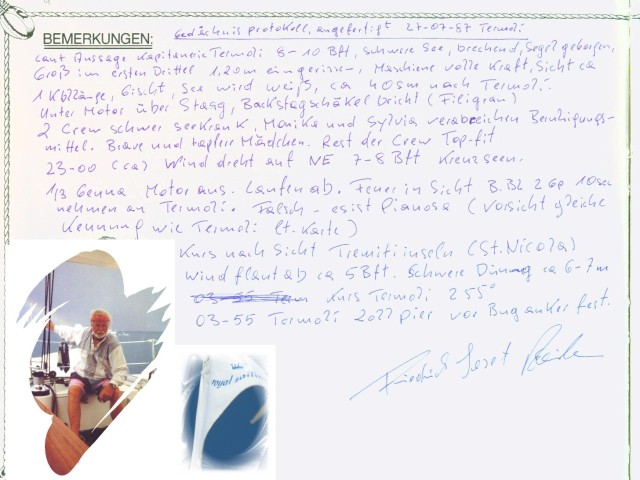 BEMERKUNGEN: Gedächnis protokoll, angefertigt 27-07-87 Termoli
Laut Aussage Kapitanerie Termoli 8-10 Bft, schwere See, brechend, Segel geborgen,
Groß im ersten Drittel 1,20m eingerissen, Maschiene volle Kraft, Sicht ca
1 Kbllänge, Gischt, See wird weiß, ca 40sm nach Termoli.
Unter Motor über Stagg, Backstagschäkel bricht (Filigran)
2 Crew schwer seekrank, Monika und Sylvia verabreichen Beruhigungs-
mittel. Brave und tapfere Mädchen. Rest der Crew Top-fit
23-00 (ca) Wind dreht auf NE 7-8 Bft Kreuzseen.
1/3 Genua Motor aus. Laufen ab. Feuer in Sicht B.Bl 2 Gp 10sec
nehmen an Termoli. Falsch - es ist Pianosa (Vorsicht gleiche
Kennung wie Termoli lt. Karte)
Kurs nach Sicht Tremitiinseln (St. Nicola)
Wind flaut ab ca 5Bft. schwere Dünung ca 6-7m
03-55 Kurs Termoli 255°
03-55 Termoli Zoll Pier vor Buganker fest.
Friedrich Josef
royal